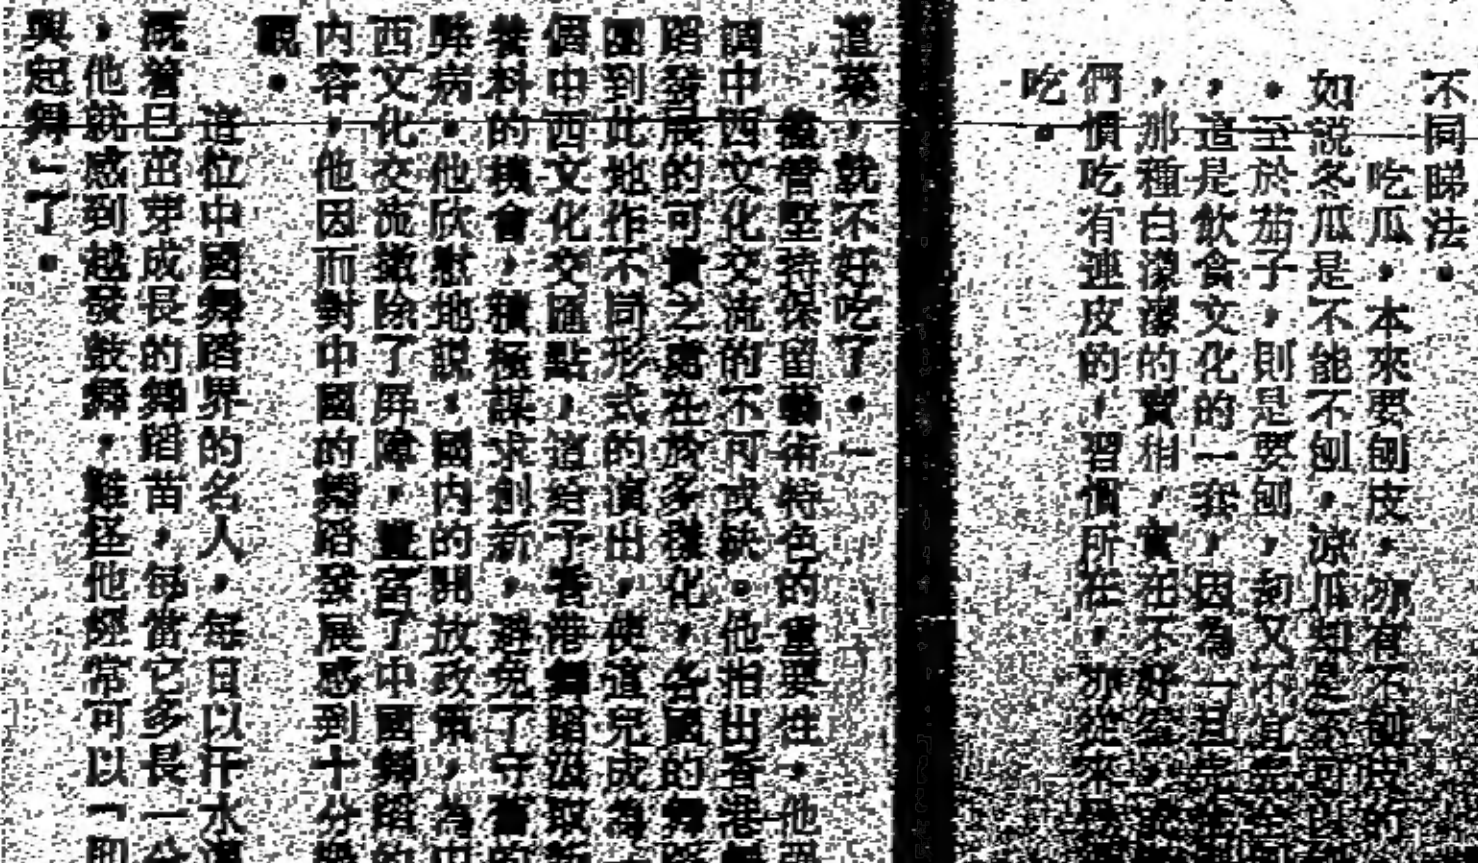 不同睇法。
吃瓜，本來要刨皮，亦有不刨皮的
如説冬瓜是不能不刨，涼瓜却是不可以
。至於茄子，則是要刨，初又不宜完全
，這是飲食文化的一套，因為一旦
，那種白濛濛的賣相，實在不好
們慣吃有連皮的，習慣所在，亦從來
吃。
道菜，就不好吃了。」
儘管堅持保留藝術特色的重要性，他
調中西文化交流的不可或缺。他指出香港
蹈發展的可貴之處在於多樣化，各國的舞
團到此地作不同形式的演出，使這兒成為
個中西文化交匯點，這給予香港舞蹈汲取
養料的機會，積極謀求創新，避免了守舊的
弊病。他欣慰地説：國内的開放政策，為中
西文化交流撤除了屏障，豐富了中國舞蹈的
内容，他因而對中國的舞蹈發展感到十分
觀。
這位中國舞蹈界的名人，每日以汗水
溉着已出芽成長的舞蹈苗，每當它多長一分
，他就感到越發鼓舞，難怪他經常可以「聞
興起舞」了。